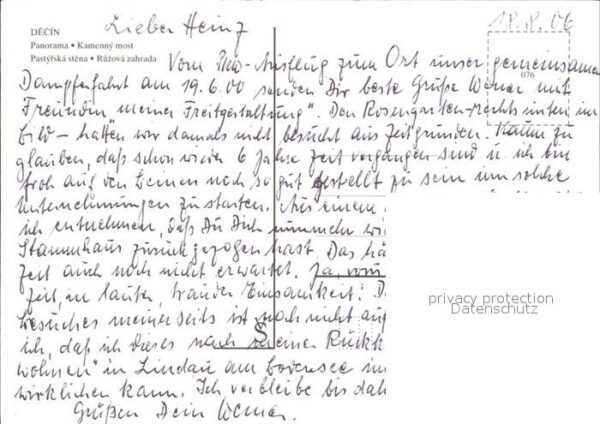 DĚČÍN
Panorama • Kamenný most
Pastýřská stěna • Růžová zahrada
076
Š
Lieber Heinz
18.8.06
Vom Ausflug zum Ort unser gemeinsamen
Dampferfahrt am 19.6.00 senden Dir beste Grüße Werner mit
Freundin meiner Freitgestaltung". Den Rosengarten-rechts unten im
Bild – hatten wir damals nicht besucht aus Zeitgründen. Kaum zu
glauben, daß schon wieder 6 Jahre Zeit vergangen sind u. ich bin
froh auf den Beinen noch so gut gestellt zu sein um solche
Unternehmungen zu starten. Aus einem
ich entnehmen, daß Du Dich nunmehr
Stammhaus zurückgezogen hast. Das
Zeit auch noch nicht erwartet. Ja, vom
Zeit, in lauter, Einsamkeit!
Besuches meinerseits ist noch nicht
ich, daß ich dieses nach meiner
wohnen" in Lindau am Bodensee
wirklichen kann. Ich verbleibe bis
Grüßen Dein Werner.
privacy protection
Datenschutz